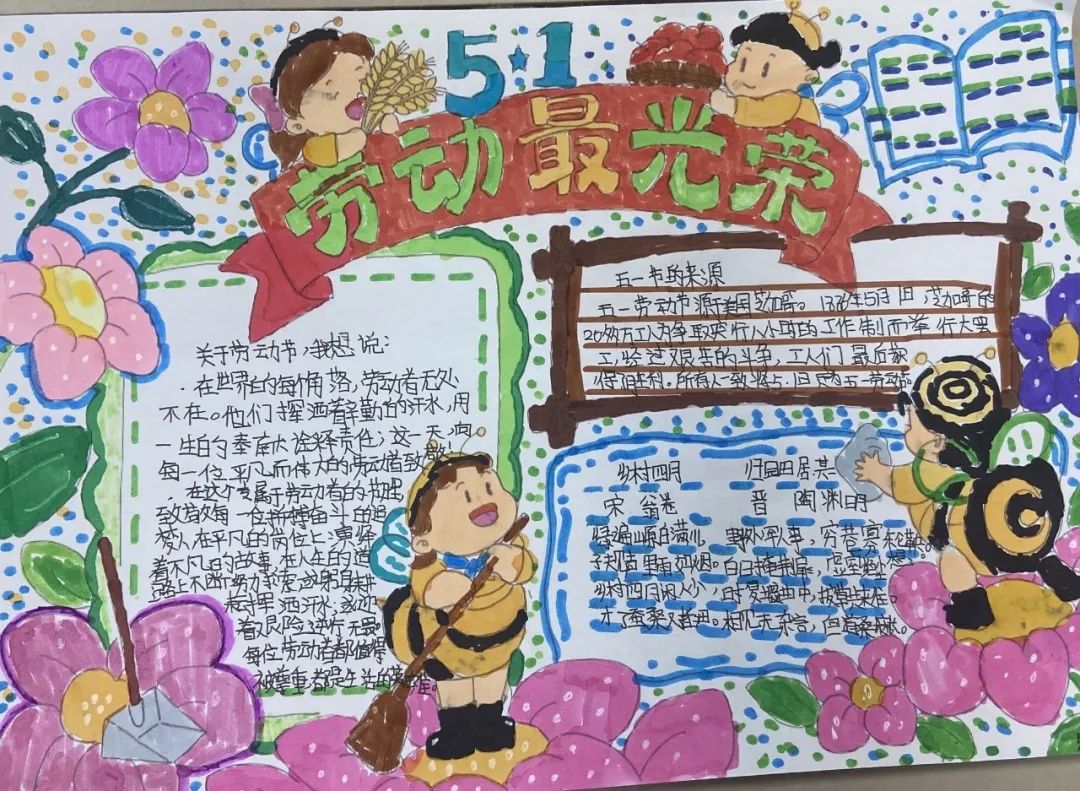 5★1
劳动最光荣
关于劳动节，我想说：
在世界的每个角落，劳动者无处
不在。他们挥洒着辛勤的汗水，用
一生的奉献诠释责任；这一天，向
每一位平凡而伟大的劳动者致敬
在这个专属于劳动者的节日里
致敬每一位拼搏奋斗的追
梦人在平凡的岗位上演绎
着不凡的故事，在人生的道
路上不断努力
洒汗水；
着艰险
每位劳动者都值得
被尊重都是生活的
五一节的来源
五一劳动节源于美国芝加哥。1886年5月1日，芝加哥的
20多万工人为争取实行八小时的工作制而举行大罢
工，经过艰苦的斗争，工人们最后获
得胜利。所有人一致将5.1日定为五一劳动节。
乡村四月
宋 翁卷
绿遍山原白满川
子规声里雨如烟。
乡村四月闲人少，
才了蚕桑又插田。
归园田居其
晋 陶渊明
野外罕人事，穷巷寡轮鞅。
白日掩荆扉，虚室绝尘想。
时复墟曲中，披草共来往。
相见无杂言，但道桑麻长。